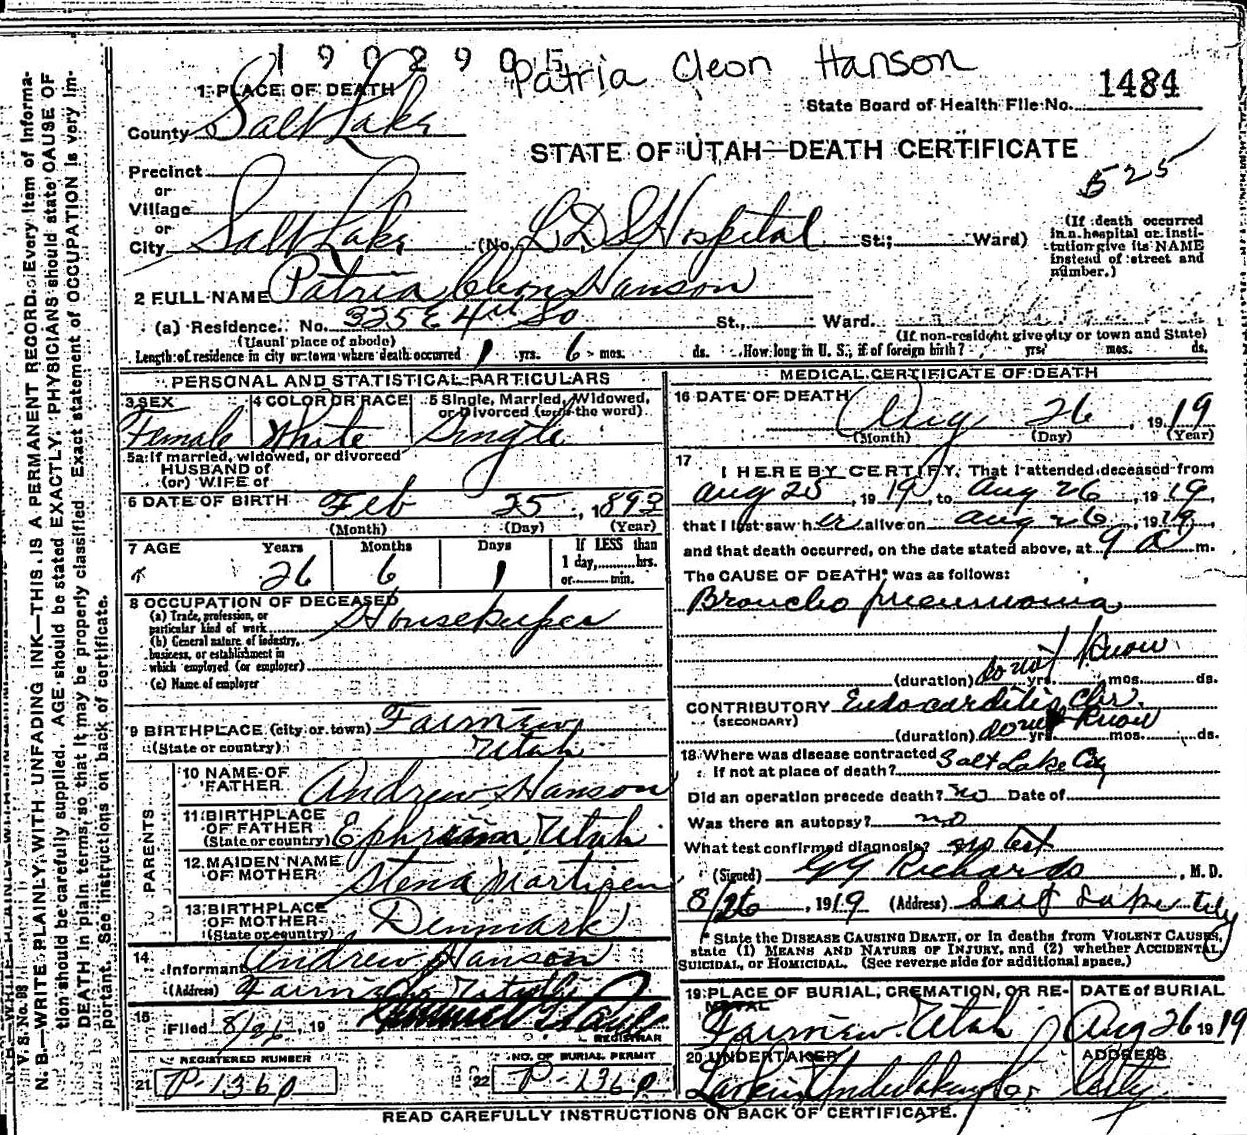 1902905
Patria Cleon Hanson
1484
State Board of Health File No.
1 PLACE OF DEATH
County Salt Lake
STATE OF UTAH—DEATH CERTIFICATE
525
Precinct
or
Village
or
City Salt Lake (No. LDS Hospital St.; Ward)
(If death occurred in a hospital or institution give its NAME instead of street and number.)
2 FULL NAME Patria Cleon Hanson
(a) Residence. No. 325 E 4th So St., Ward.
(Usual place of abode) (If non-resident give city or town and State)
Length of residence in city or town where death occurred 1 yrs. 6 mos. ds. How long in U. S., if of foreign birth? yrs. mos. ds.
PERSONAL AND STATISTICAL PARTICULARS
3 SEX 4 COLOR OR RACE 5 Single, Married, Widowed, or Divorced (write the word)
Female White Single
5a If married, widowed, or divorced
HUSBAND of
(or) WIFE of
6 DATE OF BIRTH Feb 25, 1893
(Month) (Day) (Year)
7 AGE Years Months Days If LESS than
26 6 1 1 day,........hrs.
or........min.
8 OCCUPATION OF DECEASED
(a) Trade, profession, or particular kind of work Housekeeper
(b) General nature of industry, business, or establishment in which employed (or employer)
(c) Name of employer
9 BIRTHPLACE (city or town) Fairview
(State or country) Utah
PARENTS
10 NAME OF FATHER Andrew Hanson
11 BIRTHPLACE OF FATHER (State or country) Ephraim Utah
12 MAIDEN NAME OF MOTHER Stena
13 BIRTHPLACE OF MOTHER (State or country) Denmark
14 Informant Andrew Hanson
(Address) Fairview Utah
15 Filed 8/26, 19
REGISTRAR
REGISTERED NUMBER
21 P-1360
NO. OF BURIAL PERMIT
22 P-1360
MEDICAL CERTIFICATE OF DEATH
16 DATE OF DEATH
Aug 26 1919
(Month) (Day) (Year)
17 I HEREBY CERTIFY, That I attended deceased from
Aug 25, 1919, to Aug 26, 1919,
that I last saw her alive on Aug 26, 1919,
and that death occurred, on the date stated above, at 9 a m.
The CAUSE OF DEATH* was as follows:
Broncho pneumonia
(duration) do not know yrs. mos. ds.
CONTRIBUTORY Endocarditis, Chr.
(SECONDARY)
(duration) do not know yrs. mos. ds.
18 Where was disease contracted
if not at place of death? Salt Lake City
Did an operation precede death? no Date of
Was there an autopsy? no
What test confirmed diagnosis? no test
(Signed) GG Richards, M. D.
8/26, 1919 (Address) Salt Lake City
* State the DISEASE CAUSING DEATH, or in deaths from VIOLENT CAUSES, state (1) MEANS AND NATURE OF INJURY, and (2) whether ACCIDENTAL, SUICIDAL, or HOMICIDAL. (See reverse side for additional space.)
19 PLACE OF BURIAL, CREMATION, OR REMOVAL DATE OF BURIAL
Fairview Utah Aug 26 1919
20 UNDERTAKER ADDRESS
Larkin Undertaking Co City
READ CAREFULLY INSTRUCTIONS ON BACK OF CERTIFICATE.
V. S. No. 98
N. B.—WRITE PLAINLY, WITH UNFADING INK—THIS IS A PERMANENT RECORD. Every item of information should be carefully supplied. AGE should be stated EXACTLY. PHYSICIANS should state CAUSE OF DEATH in plain terms, so that it may be properly classified. Exact statement of OCCUPATION is very important. See instructions on back of certificate.